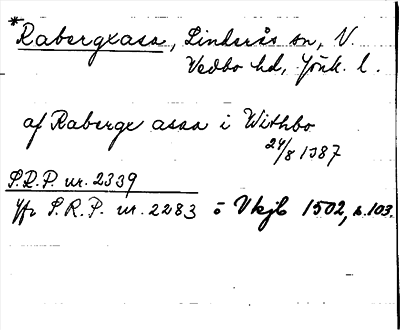 *Rabergxasa, Linderås sn, N.
Vedbo hd, Jönk. l.
af Raberge assa i Withbo
24/8 1387
S.R.P. nr. 2339
Jfr S.R.P. nr. 2283 o Vkjb 1502, s. 103.